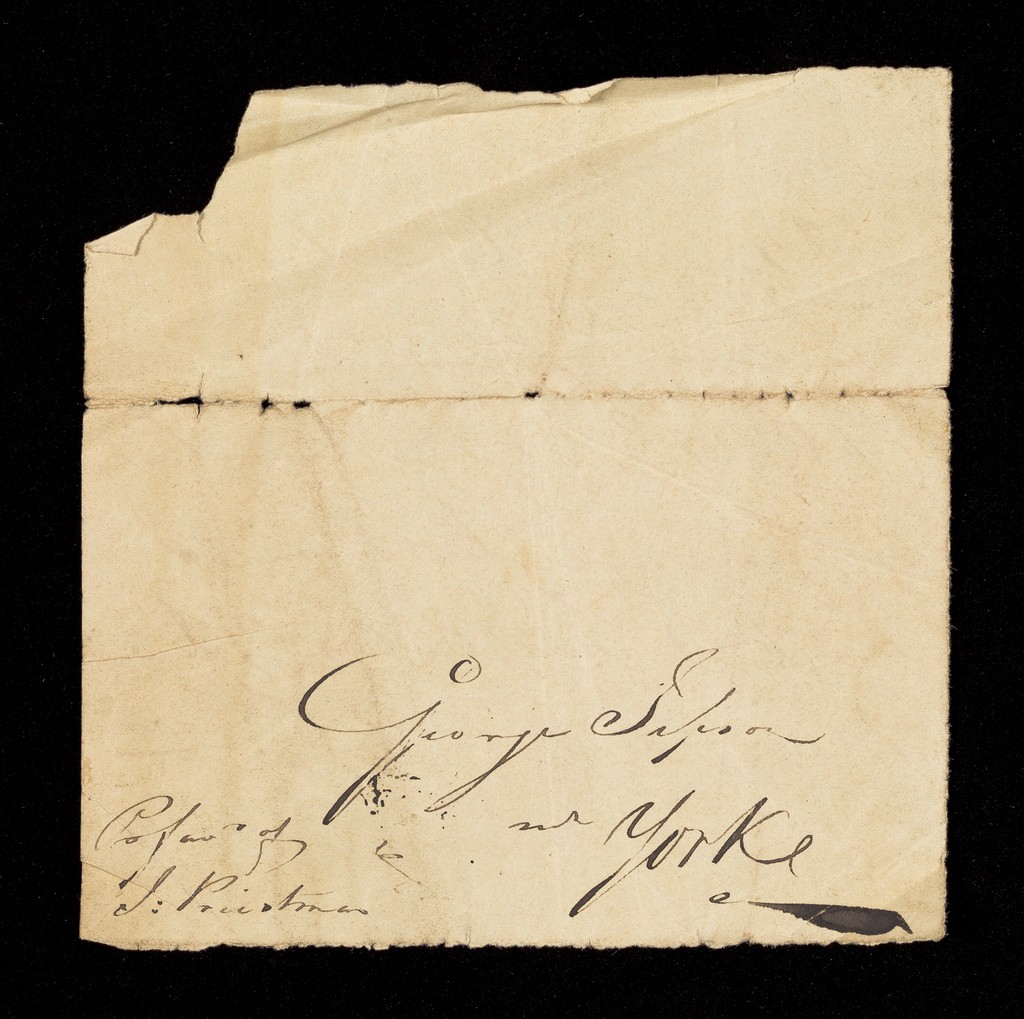 George Jepson
nr Yorke
Pr favor of
J: Priestman